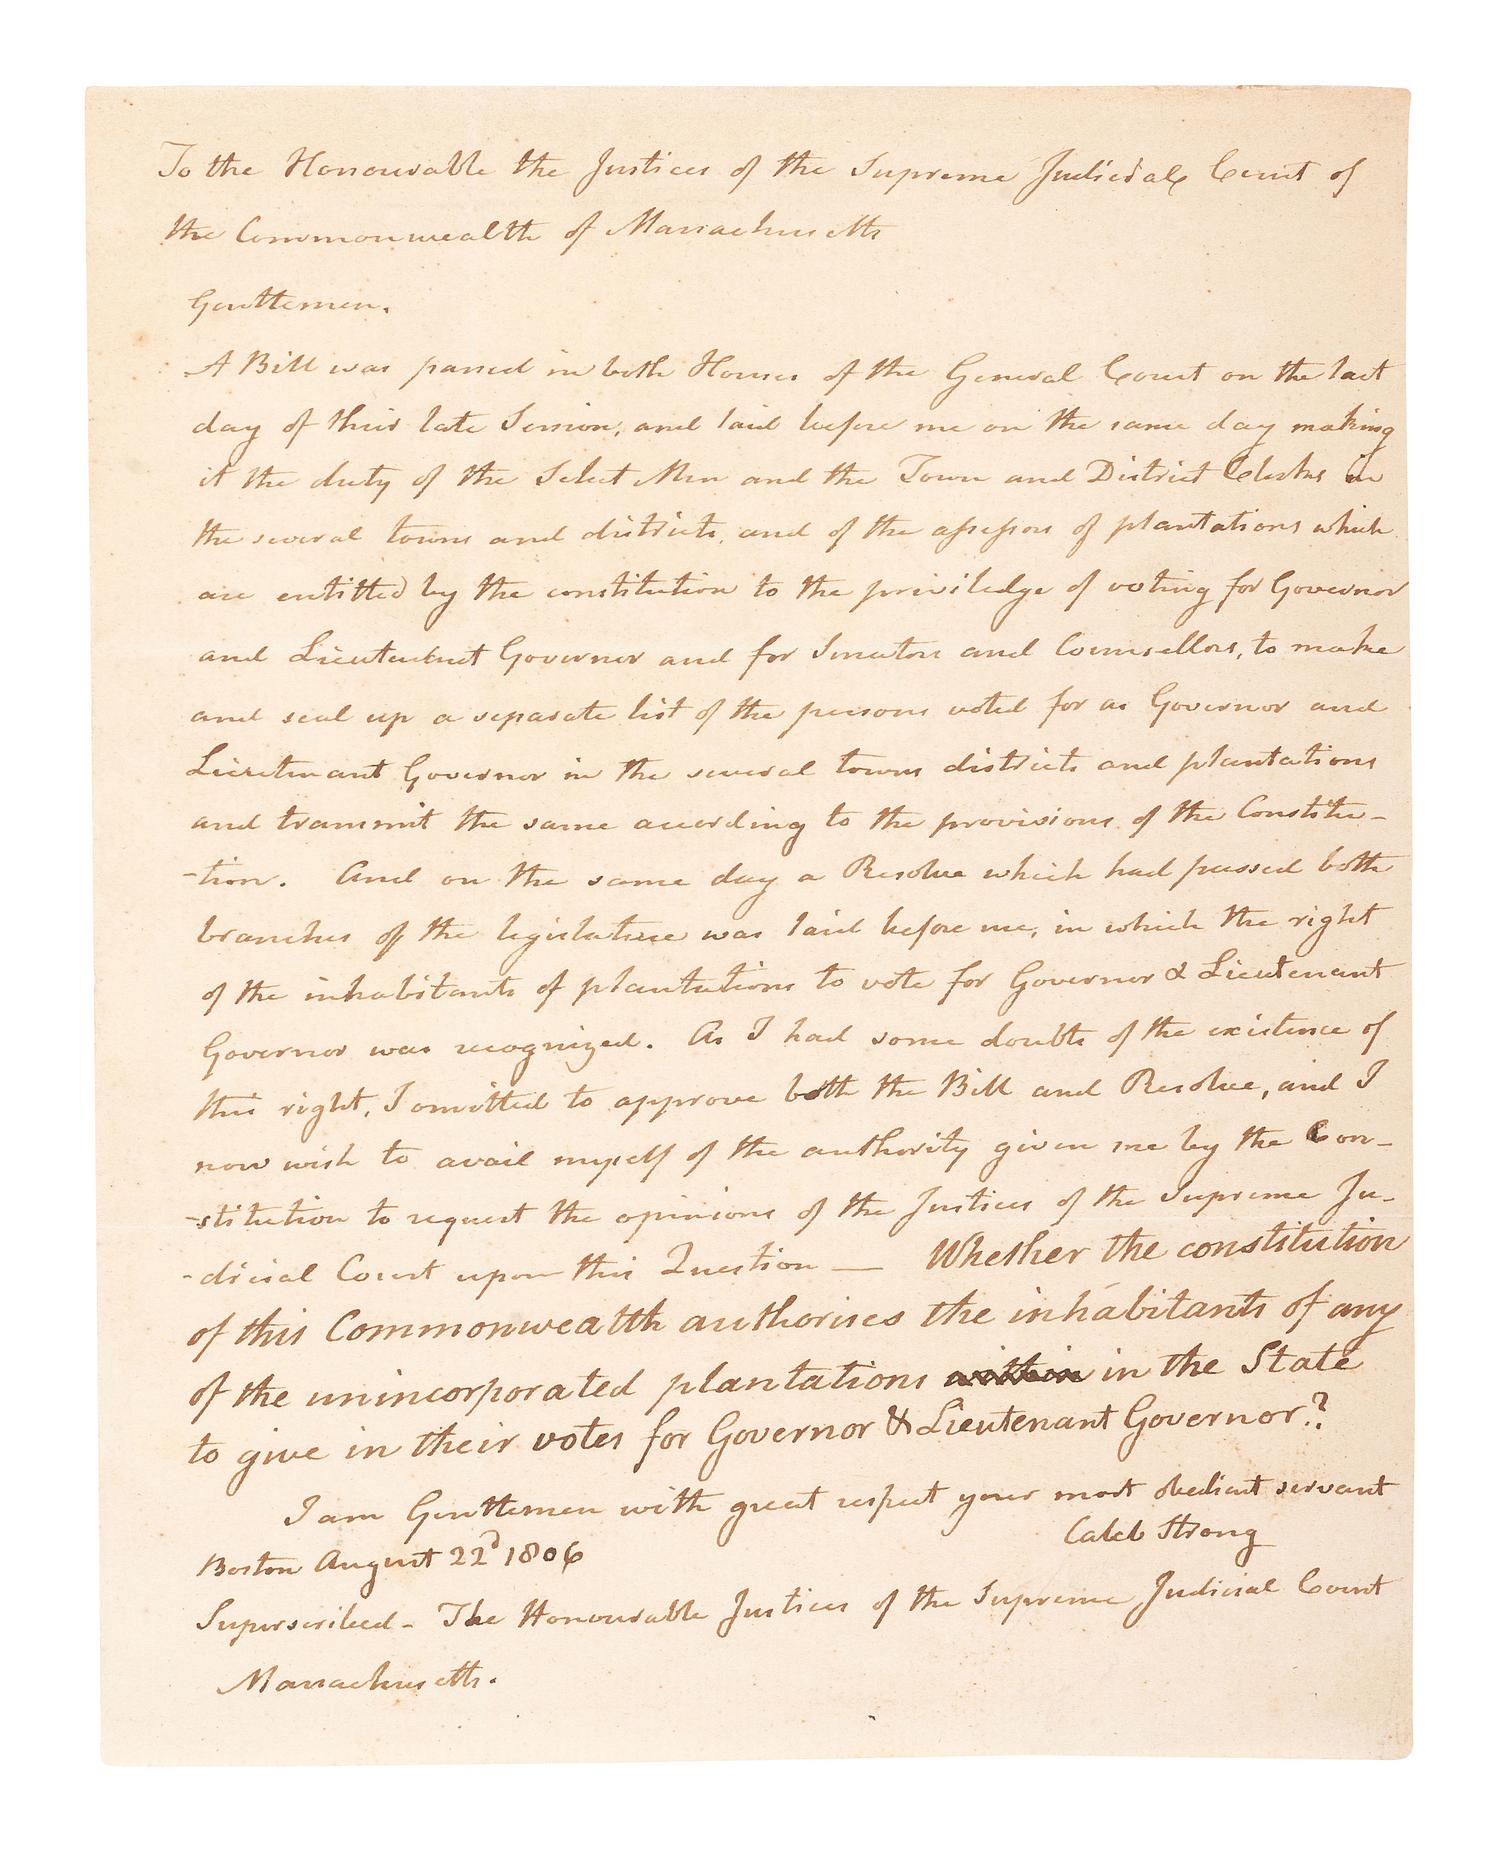 To the Honourable the Justices of the Supreme Judicial Court of
the Commonwealth of Massachusetts
Gentlemen.
A Bill was passed in both Houses of the General Court on the last
day of their late Session, and laid before me on the same day making
it the duty of the Select Men and the Town and District Clerks in
the several towns and districts, and of the assessors of plantations which
are entitled by the constitution to the priviledge of voting for Governor
and Lieutenant Governor and for Senators and Counsellors, to make
and seal up a separate list of the persons voted for as Governor and
Lieutenant Governor in the several towns districts and plantations
and transmit the same according to the provisions of the Constitu-
-tion. And on the same day a Resolve which had passed both
branches of the legislature was laid before me, in which the right
of the inhabitants of plantations to vote for Governor & Lieutenant
Governor was recognized. As I had some doubts of the existence of
this right, I omitted to approve both the Bill and Resolve, and I
now wish to avail myself of the authority given me by the Con-
-stitution to request the opinions of the Justices of the Supreme Ju-
-dicial Court upon this Question — Whether the constitution
of this Commonwealth authorises the inhabitants of any
of the unincorporated plantations within in the State
to give in their votes for Governor & Lieutenant Governor?
I am Gentlemen with great respect your most obedient servant
Caleb Strong
Boston August 22d 1806
Superscribed - The Honourable Justices of the Supreme Judicial Court
Massachusetts.